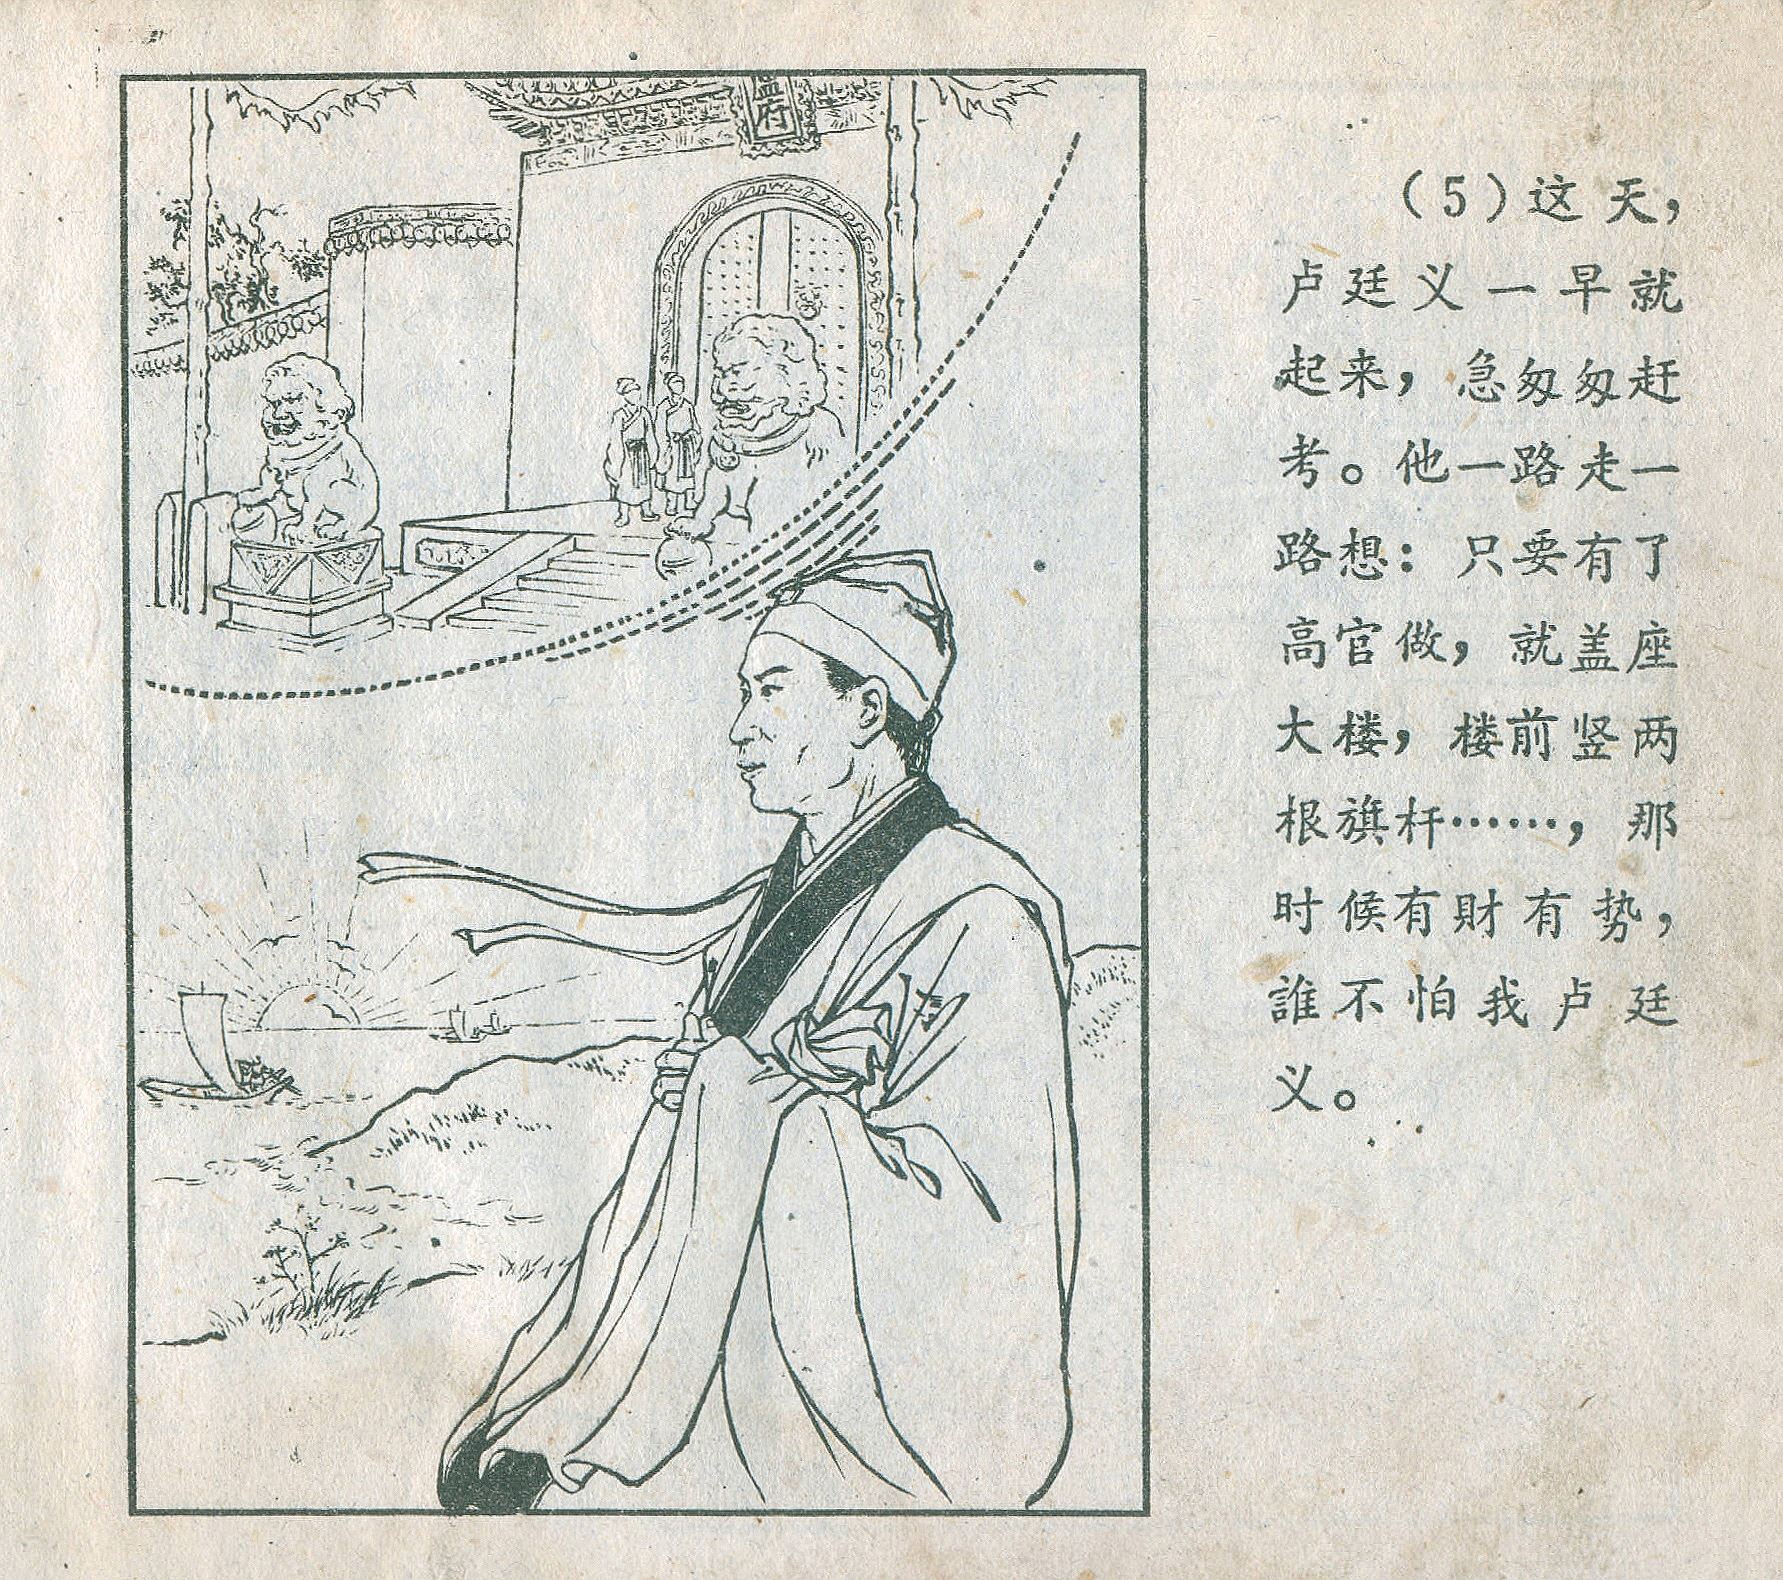 盧府
（5）这天，
卢廷义一早就
起来，急匆匆赶
考。他一路走一
路想：只要有了
高官做，就盖座
大楼，楼前竖两
根旗杆……，那
时候有財有势，
誰不怕我卢廷
义。